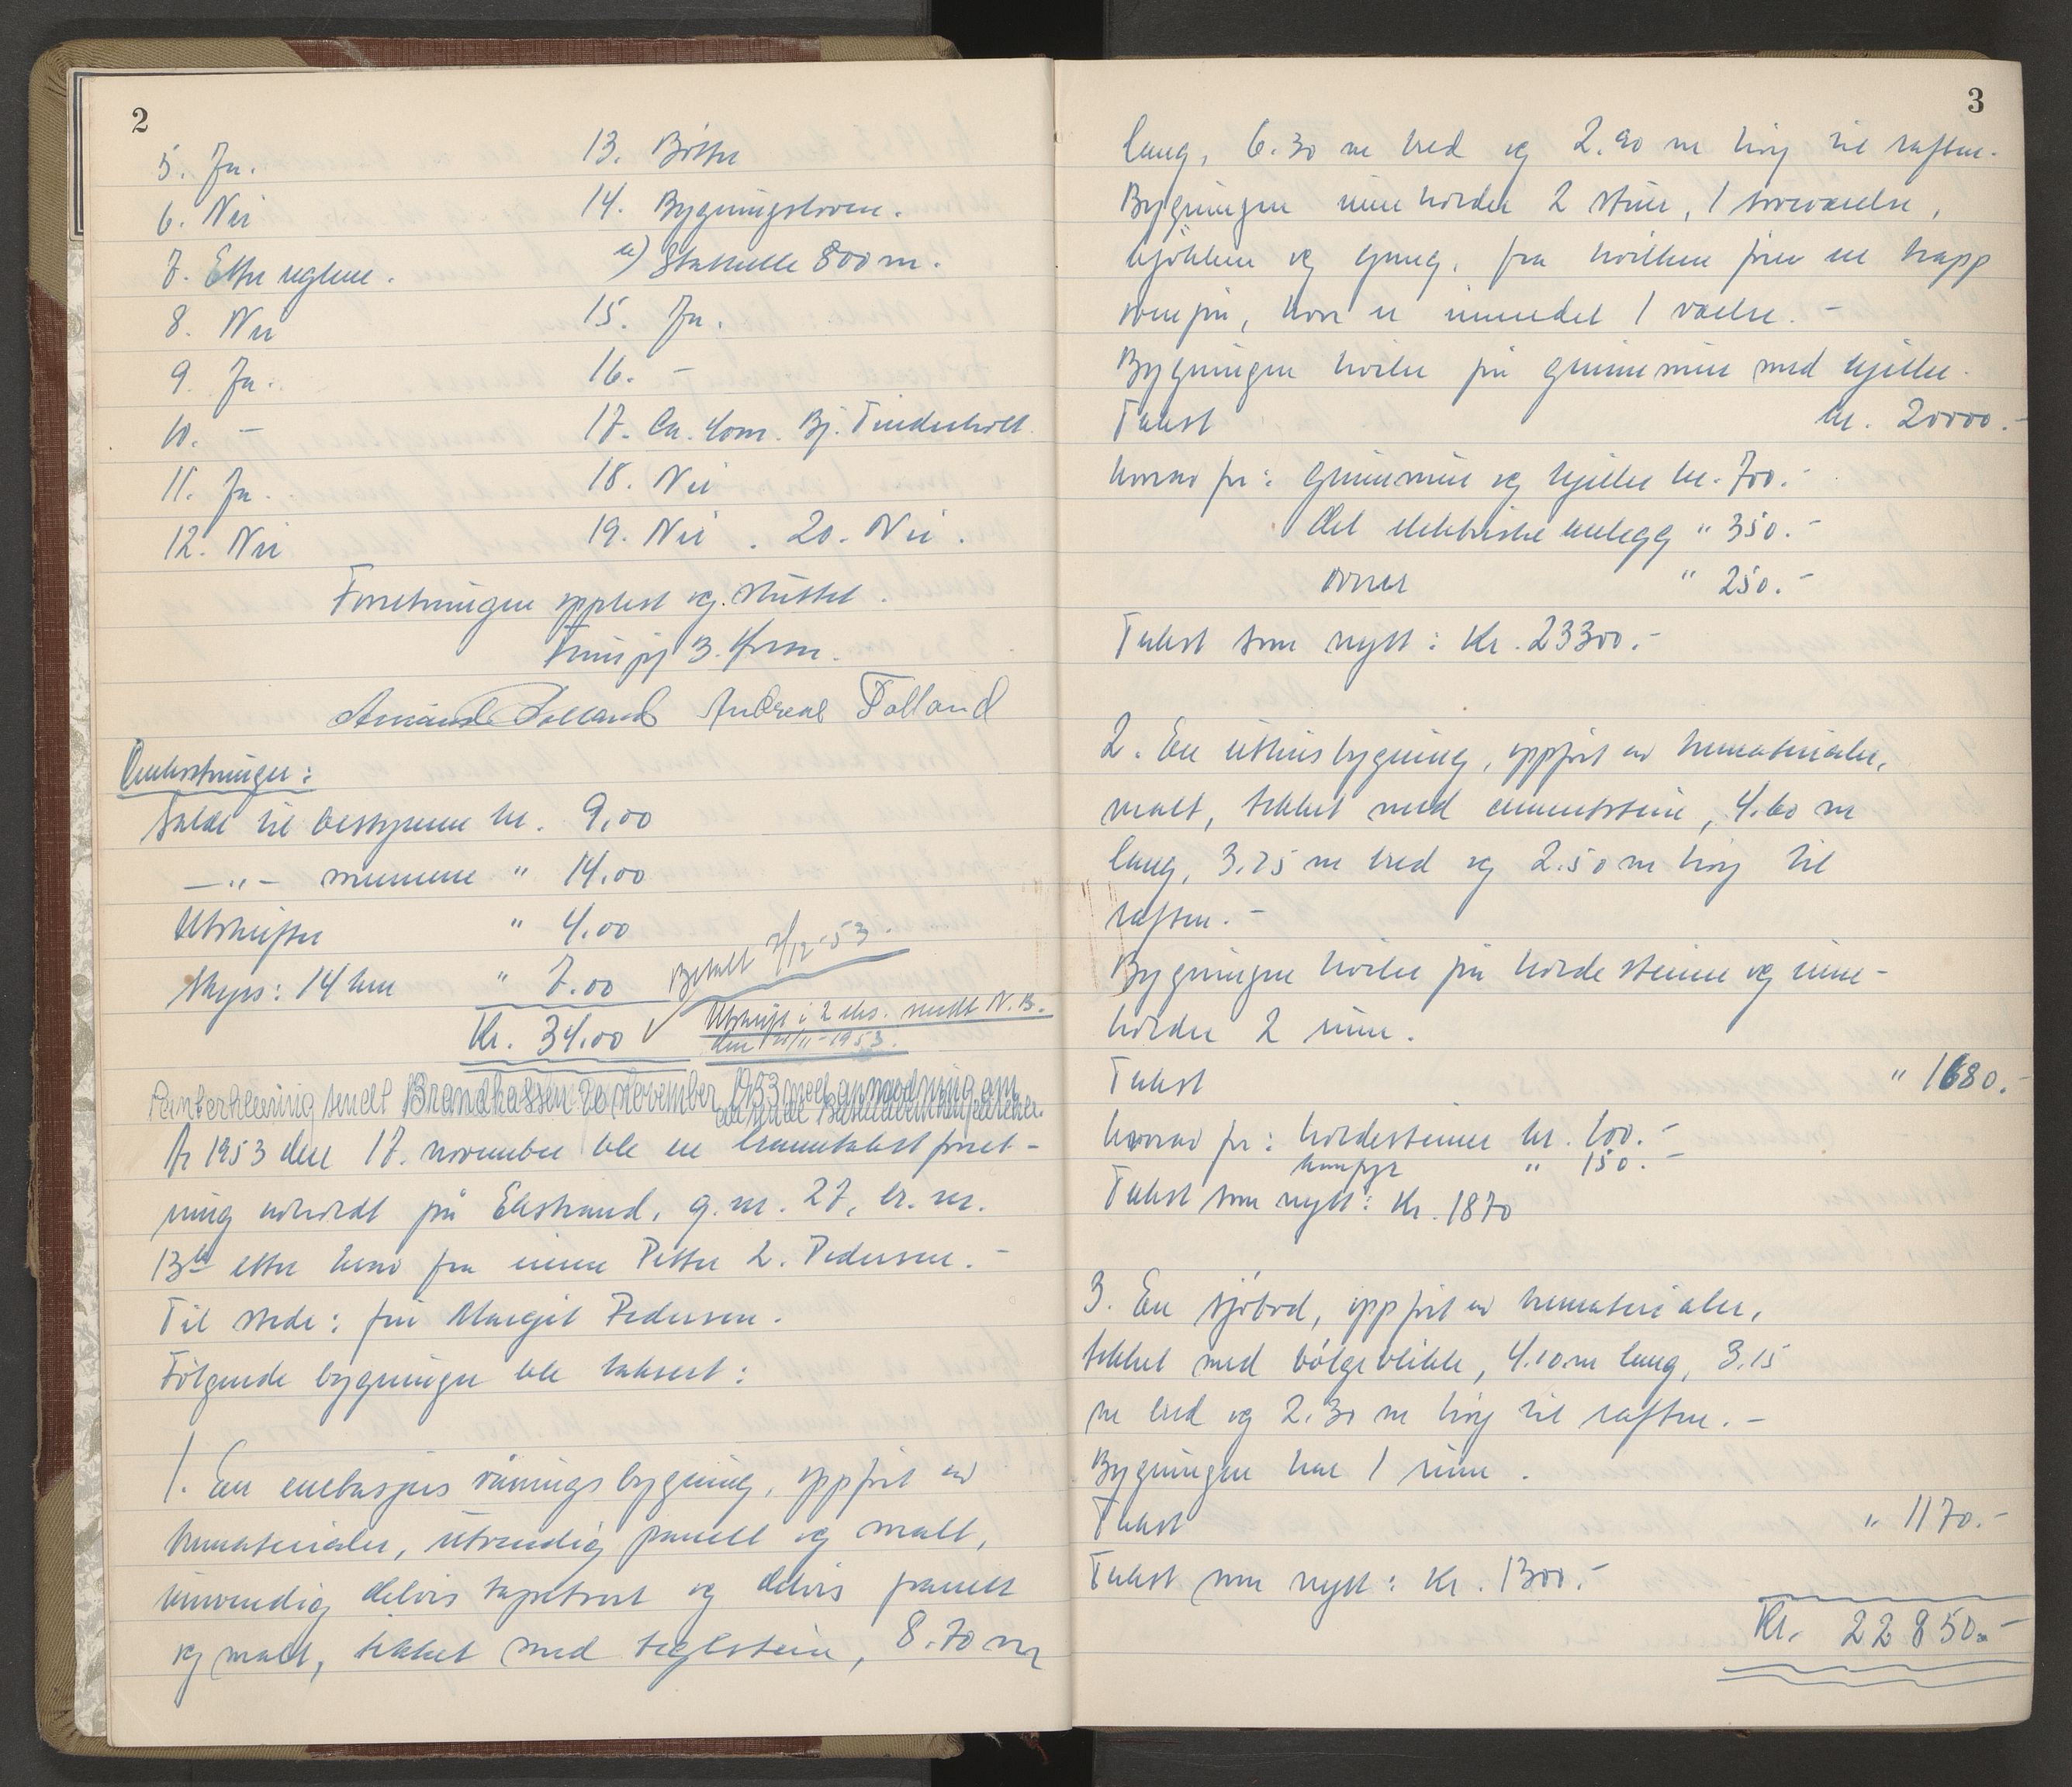 2
5. Ja.
6. Nei
7. Etter reglene.
8. Nei
9. Ja.
10. -
11. Ja.
12. Nei
13. Bøtter
14. Bygningsloven.
a) Stakkelle 800 m.
15. Ja.
16. -
17. Ca. 40m. Bj. Tinderholt
18. Nei
19. Nei . 20. Nei .
Forretningen opplest og sluttet.
Andreas Folland
Omkostninger:
Salær til bestyreren kr. 9,00
—"— mennene " 14.00
Utskrifter " 4.00
Skyss: 14 km " 7.00
Kr. 34,00 ✓
Betalt 2/12-53.
Utskrift i 2 eks. sendt N.B.
den /11-1953.
Panterklæring sendt Brandkassen 20 November 1953 med anmodning om
År 1953 den 17. november ble en branntakstforret-
ning avholdt på Ekstrand, g.nr. 27, br.nr.
13 etter krav fra eieren Petter L. Pedersen.-
Til stede: fru Margit Pedersen.
Følgende bygninger ble taksert:
1. En enetasjes våningsbygning, oppført av
trematerialer, utvendig panelt og malt,
innvendig delvis tapetsert og delvis panelt
og malt, tekket med teglstein, 8.70 m
3
lang, 6.30 m bred og 2.90 m høy til raften.
Bygningen inneholder 2 stuer, 1 soveværelse,
kjøkken og gang, fra hvilken fører en trapp
ovenpå, hvor er innredet 1 værelse. -
Bygningen hviler på grunnmur med kjeller.
Takst kr. 20000.-
hvorav for: grunnmur og kjeller kr. 700.-
det elektriske anlegg " 350.-
ovner " 250.-
Takst som nytt: Kr. 23300.-
2. En uthusbygning, oppført av trematerialer,
malt, tekket med cementstein, 4.60 m
lang, 3.25 m bred og 2.50 m høy til
raften. -
Bygningen hviler på holdesteiner og inne-
holder 2 rum.
Takst " 1680.-
hvorav for: holdesteiner kr. 100.-
" 150.-
Takst som nytt: Kr. 1870
3. En sjøbod, oppført av trematerialer,
tekket med bølgeblikk, 4.10 m lang, 3.15
m bred og 2.30 m høy til raften. -
Bygningen har 1 rum.
Takst " 1170.-
Takst som nytt: Kr. 1300.-
Kr. 22850.-